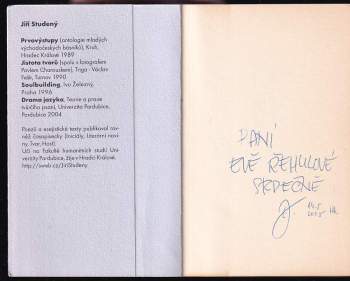 Jiří Studený
Prvovýstupy (ontologie mladých
východočeských básníků), Kruh,
Hradec Králové 1989
Jistota tvarů (spolu s fotografem
Pavlem Charouskem), Triga - Václav
Falk, Turnov 1990
Soulbuilding, Ivo Železný,
Praha 1996
Drama jazyka, Teorie a praxe
tvůrčího psaní, Univerzita Pardubice,
Pardubice 2004
Poezii a esejistické texty publikoval rov-
něž časopisecky (Iniciály, Literární novi-
ny, Tvar, Host).
Učí na Fakultě humanitních studií Uni-
verzity Pardubice, žije v Hradci Králové.
http://web.cz/JiriStudeny
PANÍ
EVĚ ŘEHULOVÉ
SRDEČNĚ
2005 HK